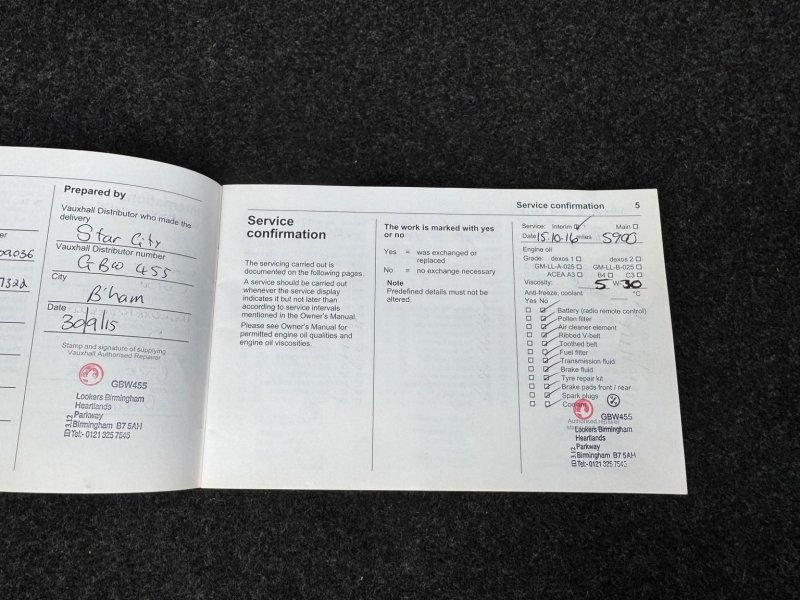 er
09036
732d
Prepared by
Vauxhall Distributor who made the
delivery
Star City
Vauxhall Distributor number
GBW 455
City
B'ham
Date
30/9/15
Stamp and signature of supplying
Vauxhall Authorised Repairer
GBW455
Lookers Birmingham
Heartlands
Parkway
Birmingham B7 5AH
Tel:- 0121 325 7545
3.12
Service
confirmation
The servicing carried out is
documented on the following pages.
A service should be carried out
whenever the service display
indicates it but not later than
according to service intervals
mentioned in the Owner's Manual.
Please see Owner's Manual for
permitted engine oil qualities and
engine oil viscosities.
The work is marked with yes
or no
Yes = was exchanged or
replaced
No = no exchange necessary
Note
Predefined details must not be
altered.
Service confirmation 5
Service: Interim Main
Date 15.10.16 miles
Engine oil
Grade: dexos 1 dexos 2
GM-LL-A-025 GM-LL-B-025
ACEA A3 B4 C3
Viscosity: 5 W 30
Anti-freeze, coolant °C
Yes No
Battery (radio remote control)
Pollen filter
Air cleaner element
Ribbed V-belt
Toothed belt
Fuel filter
Transmission fluid
Brake fluid
Tyre repair kit
Brake pads front / rear
Spark plugs
Coolant
GBW455
Authorised repairer
Lookers Birmingham
Heartlands
Parkway
Birmingham B7 5AH
Tel:- 0121 325 7545
3.12